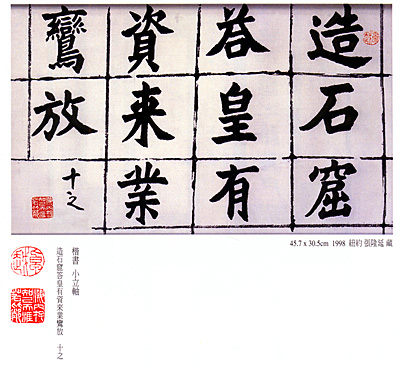 造石窟
荅皇有
資来業
鸞放
十之
45.7 x 30.5cm 1998 紐約 張隆延 藏
楷書 小立軸
造石窟答皇有資來業鸞放 十之